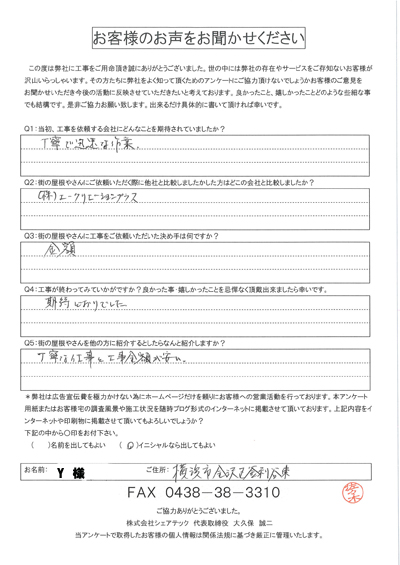 お客様のお声をお聞かせください
この度は弊社に工事をご用命頂き誠にありがとうございました。世の中には弊社の存在やサービスをご存知ないお客様が
沢山いらっしゃいます。その方たちに弊社をよく知って頂くためのアンケートにご協力頂けないでしょうかお客様のご意見を
お聞かせいただき今後の活動に反映させていただきたいと考えております。良かったこと、嬉しかったことどのような些細な事
でも結構です。是非ご協力お願い致します。出来るだけ具体的に書いて頂ければ幸いです。
Q1:当初、工事を依頼する会社にどんなことを期待されていましたか?
丁寧で迅速な作業。
Q2:街の屋根やさんにご依頼いただく際に他社と比較しましたかした方はどこの会社と比較しましたか?
(株)エークリエーションプラス
Q3:街の屋根やさんに工事をご依頼いただいた決め手は何ですか?
金額
Q4:工事が終わってみていかがですか?良かった事・嬉しかったことを忌憚なく頂戴出来ましたら幸いです。
期待どおりでした
Q5:街の屋根やさんを他の方に紹介するとしたらなんと紹介しますか?
丁寧な仕事と工事金額が安い。
*弊社は広告宣伝費を極力かけない為にホームページだけを頼りにお客様への営業活動を行っております。本アンケート
用紙またはお客様宅の調査風景や施工状況を随時ブログ形式のインターネットに掲載させて頂いております。上記内容をイ
ンターネットや印刷物に掲載させて頂いてもよろしいでしょうか?
下記の中から〇印をお付下さい。
( )名前を出してもよい (〇)イニシャルなら出してもよい
お名前: Y 様 ご住所: 横浜市金沢区釜利谷東
FAX 0438-38-3310
ご協力ありがとうございました。
株式会社シェアテック 代表取締役 大久保 誠二
当アンケートで取得したお客様の個人情報は関係法規に基づき厳正に管理いたします。